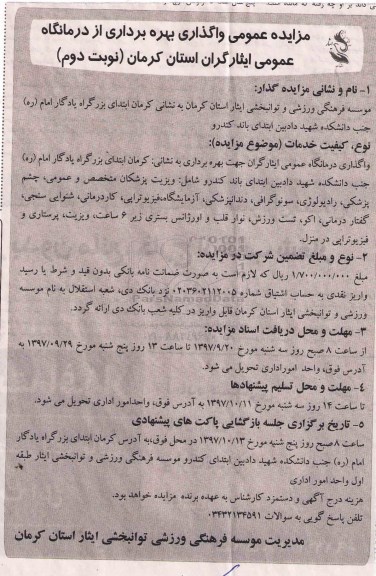 مزایده عمومی واگذاری بهره برداری از درمانگاه
عمومی ایثارگران استان کرمان (نوبت دوم)
۱- نام و نشانی مزایده گذار:
موسسه فرهنگی ورزشی و توانبخشی ایثار استان کرمان به نشانی کرمان ابتدای بزرگراه یادگار امام (ره)
جنب دانشکده شهید دادبین ابتدای باند کندرو
نوع، کیفیت خدمات (موضوع مزایده):
واگذاری درمانگاه عمومی ایثارگران جهت بهره برداری به نشانی: کرمان ابتدای بزرگراه یادگار امام (ره)
جنب دانشکده شهید دادبین ابتدای باند کندرو شامل: ویزیت پزشکان متخصص و عمومی، چشم
پزشکی، رادیولوژی، سونوگرافی، دندانپزشکی، آزمایشگاه، فیزیوتراپی، کاردرمانی، شنوایی سنجی،
گفتار درمانی، اکو، تست ورزش، نوار قلب و اورژانس بستری زیر ۶ ساعت، ویزیت، پرستاری و
فیزیوتراپی در منزل.
۲- نوع و مبلغ تضمین شرکت در مزایده:
مبلغ ۱/۷۰۰/۰۰۰/۰۰۰ ریال که لازم است به صورت ضمانت نامه بانکی بدون قید و شرط یا رسید
واریز نقدی به حساب اشتیاق شماره ۰۲۰۳۶۰۲۱۱۲۰۰۵ نزد بانک دی، شعبه استقلال به نام موسسه
ورزشی و توانبخشی ایثار استان کرمان قابل واریز در کلیه شعب بانک دی ارائه گردد.
۳- مهلت و محل دریافت اسناد مزایده:
از ساعت ۸ صبح روز سه شنبه مورخ ۱۳۹۷/۹/۲۰ تا ساعت ۱۳ روز پنج شنبه مورخ ۱۳۹۷/۰۹/۲۹ به
آدرس فوق، واحد امور اداری تحویل می شود.
۴- مهلت و محل تسلیم پیشنهادها
تا ساعت ۱۴ روز سه شنبه مورخ ۱۳۹۷/۱۰/۱۱ به آدرس فوق، واحد امور اداری تحویل می شود.
۵- تاریخ برگزاری جلسه بازگشایی پاکت های پیشنهادی
ساعت ۸ صبح روز پنج شنبه مورخ ۱۳۹۷/۱۰/۱۳ در محل فوق، به آدرس کرمان ابتدای بزرگراه یادگار
امام (ره) جنب دانشکده شهید دادبین ابتدای کندرو موسسه فرهنگی ورزشی و توانبخشی ایثار طبقه
اول واحد امور اداری
هزینه درج آگهی و دستمزد کارشناس به عهده برنده مزایده خواهد بود.
تلفن پاسخ گویی به سوالات ۰۳۴۳۲۱۳۴۵۹۱
مدیریت موسسه فرهنگی ورزشی توانبخشی ایثار استان کرمان